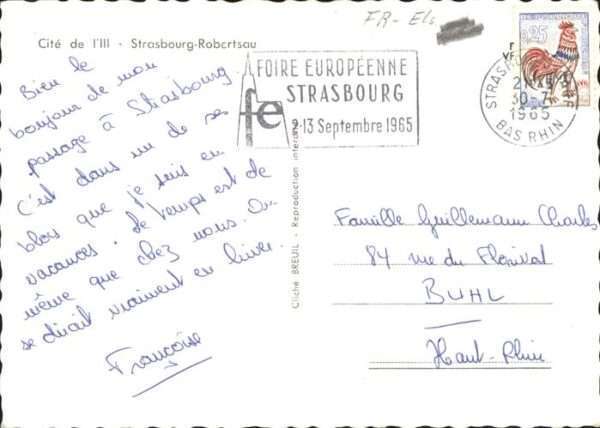 FR - Els
Cité de l'Ill - Strasbourg-Robertsau
Bien le
bonjour de mon
passage à Strasbourg.
C'est dans un de ses
blocs que je suis en
vacances. Le temps est de
même que chez nous. On
se dirait vraiment en hiver.
Françoise
Cliché BREUIL - Reproduction interdite
FOIRE EUROPÉENNE
STRASBOURG
fe
2-13 Septembre 1965
STRASBOURG
30-7
1965
BAS RHIN
0,25
Famille Guillemann Charles
84 rue du Florival
BUHL
Haut-Rhin